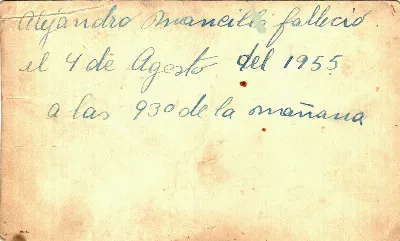 Alejandro Mancilli falleció.
el 4 de Agosto del 1955
a las 930 de la mañana